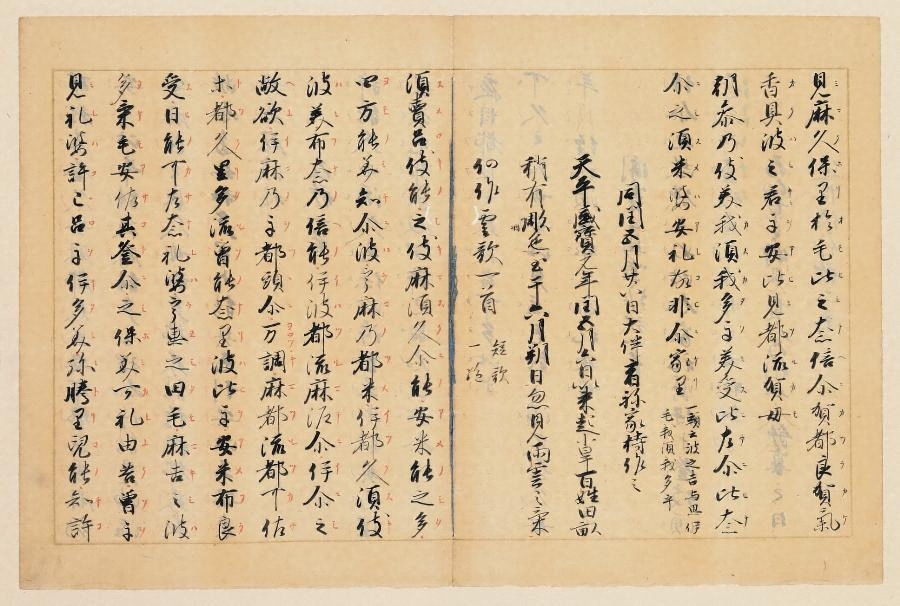 見麻久保里於毛比之奈倍尓賀都良賀氣
香具波之君乎安比見都流賀母
朝参乃伎美我須我多乎美受比左尓比奈
尓之須米婆安礼故非尓家里 一頭云波之吉与思伊
毛我須我多乎
同閏五月廿八日大伴宿祢家持作之
天平感寶元年閏五月六日以来起小旱百姓田畝
稍有彫色至于六月朔日忽見雨雲之氣
仍作雲歌一首 短歌
一絶
須賣呂伎能之伎麻須久尓能安米能之多
四方能美知尓波宇麻乃都米伊都久須伎
波美布奈乃倍能伊波都流麻泥尓伊尓之
敝欲伊麻乃乎都頭尓万調麻都流都可佐
等都久里多流曾能奈里波比乎安米布良
受日能可左奈礼婆宇恵之田毛麻吉之波
多氣毛安佐其登尓之保美可礼由苦曾乎
見礼婆許己呂乎伊多美弥騰里兒能知許